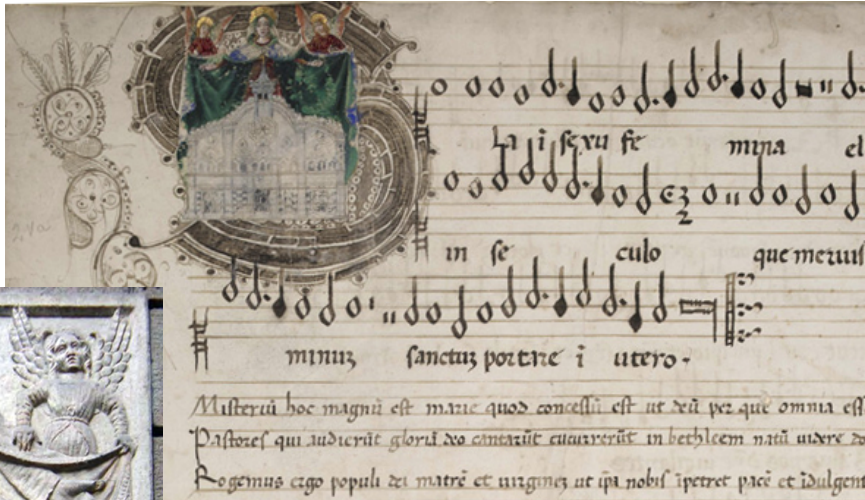 La ī sexu fe mina el
in se culo que meruis
minuz sanctuz portare ī utero.
Misteriū hoc magnū est marie quod concessū est ut deū per quē omnia
Pastores qui audierūt gloriā deo cantarūt cucurrerūt in bethleem natū uidere do
Rogemus ergo populi dei matrē et uirginez ut ip̄a nobis īpetret pacē et īdulgem